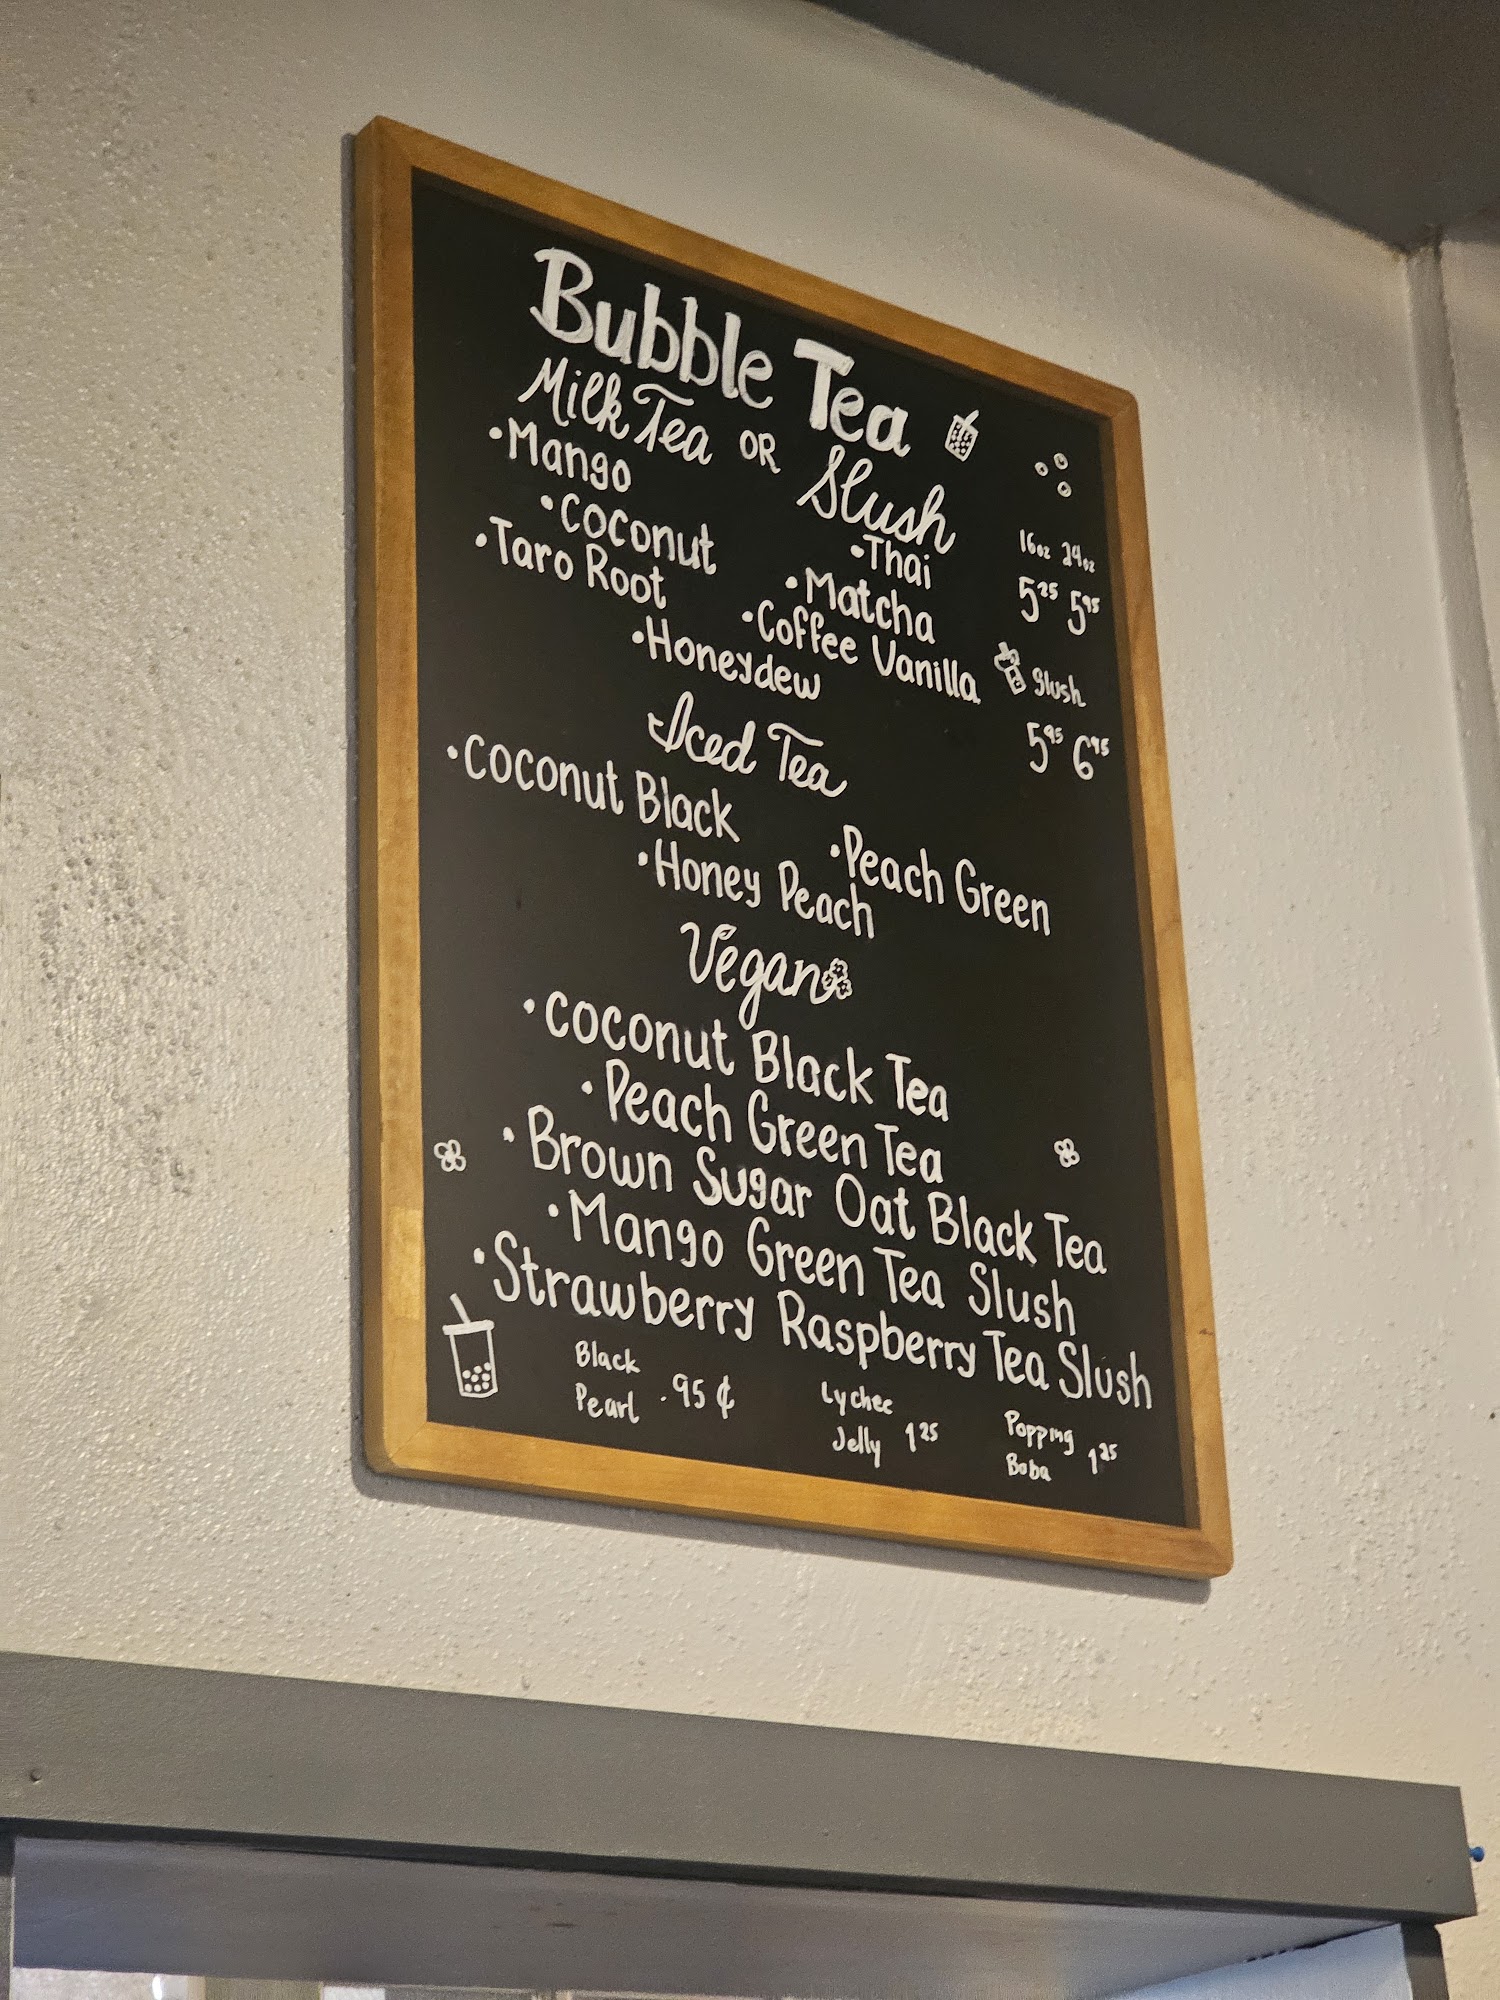 Bubble Tea
Milk Tea OR Slush
•Mango
•Coconut
•Taro Root
•Honeydew
•Thai
•Matcha
•Coffee Vanilla
16oz 24oz
5²⁵ 5⁹⁵
Slush
5⁹⁵ 6⁹⁵
Iced Tea
•Coconut Black
•Peach Green
•Honey Peach
Vegan
•Coconut Black Tea
•Peach Green Tea
•Brown Sugar Oat Black Tea
•Mango Green Tea Slush
•Strawberry Raspberry Tea Slush
Black
Pearl .95¢
Lychee
Jelly 1²⁵
Popping
Boba 1²⁵